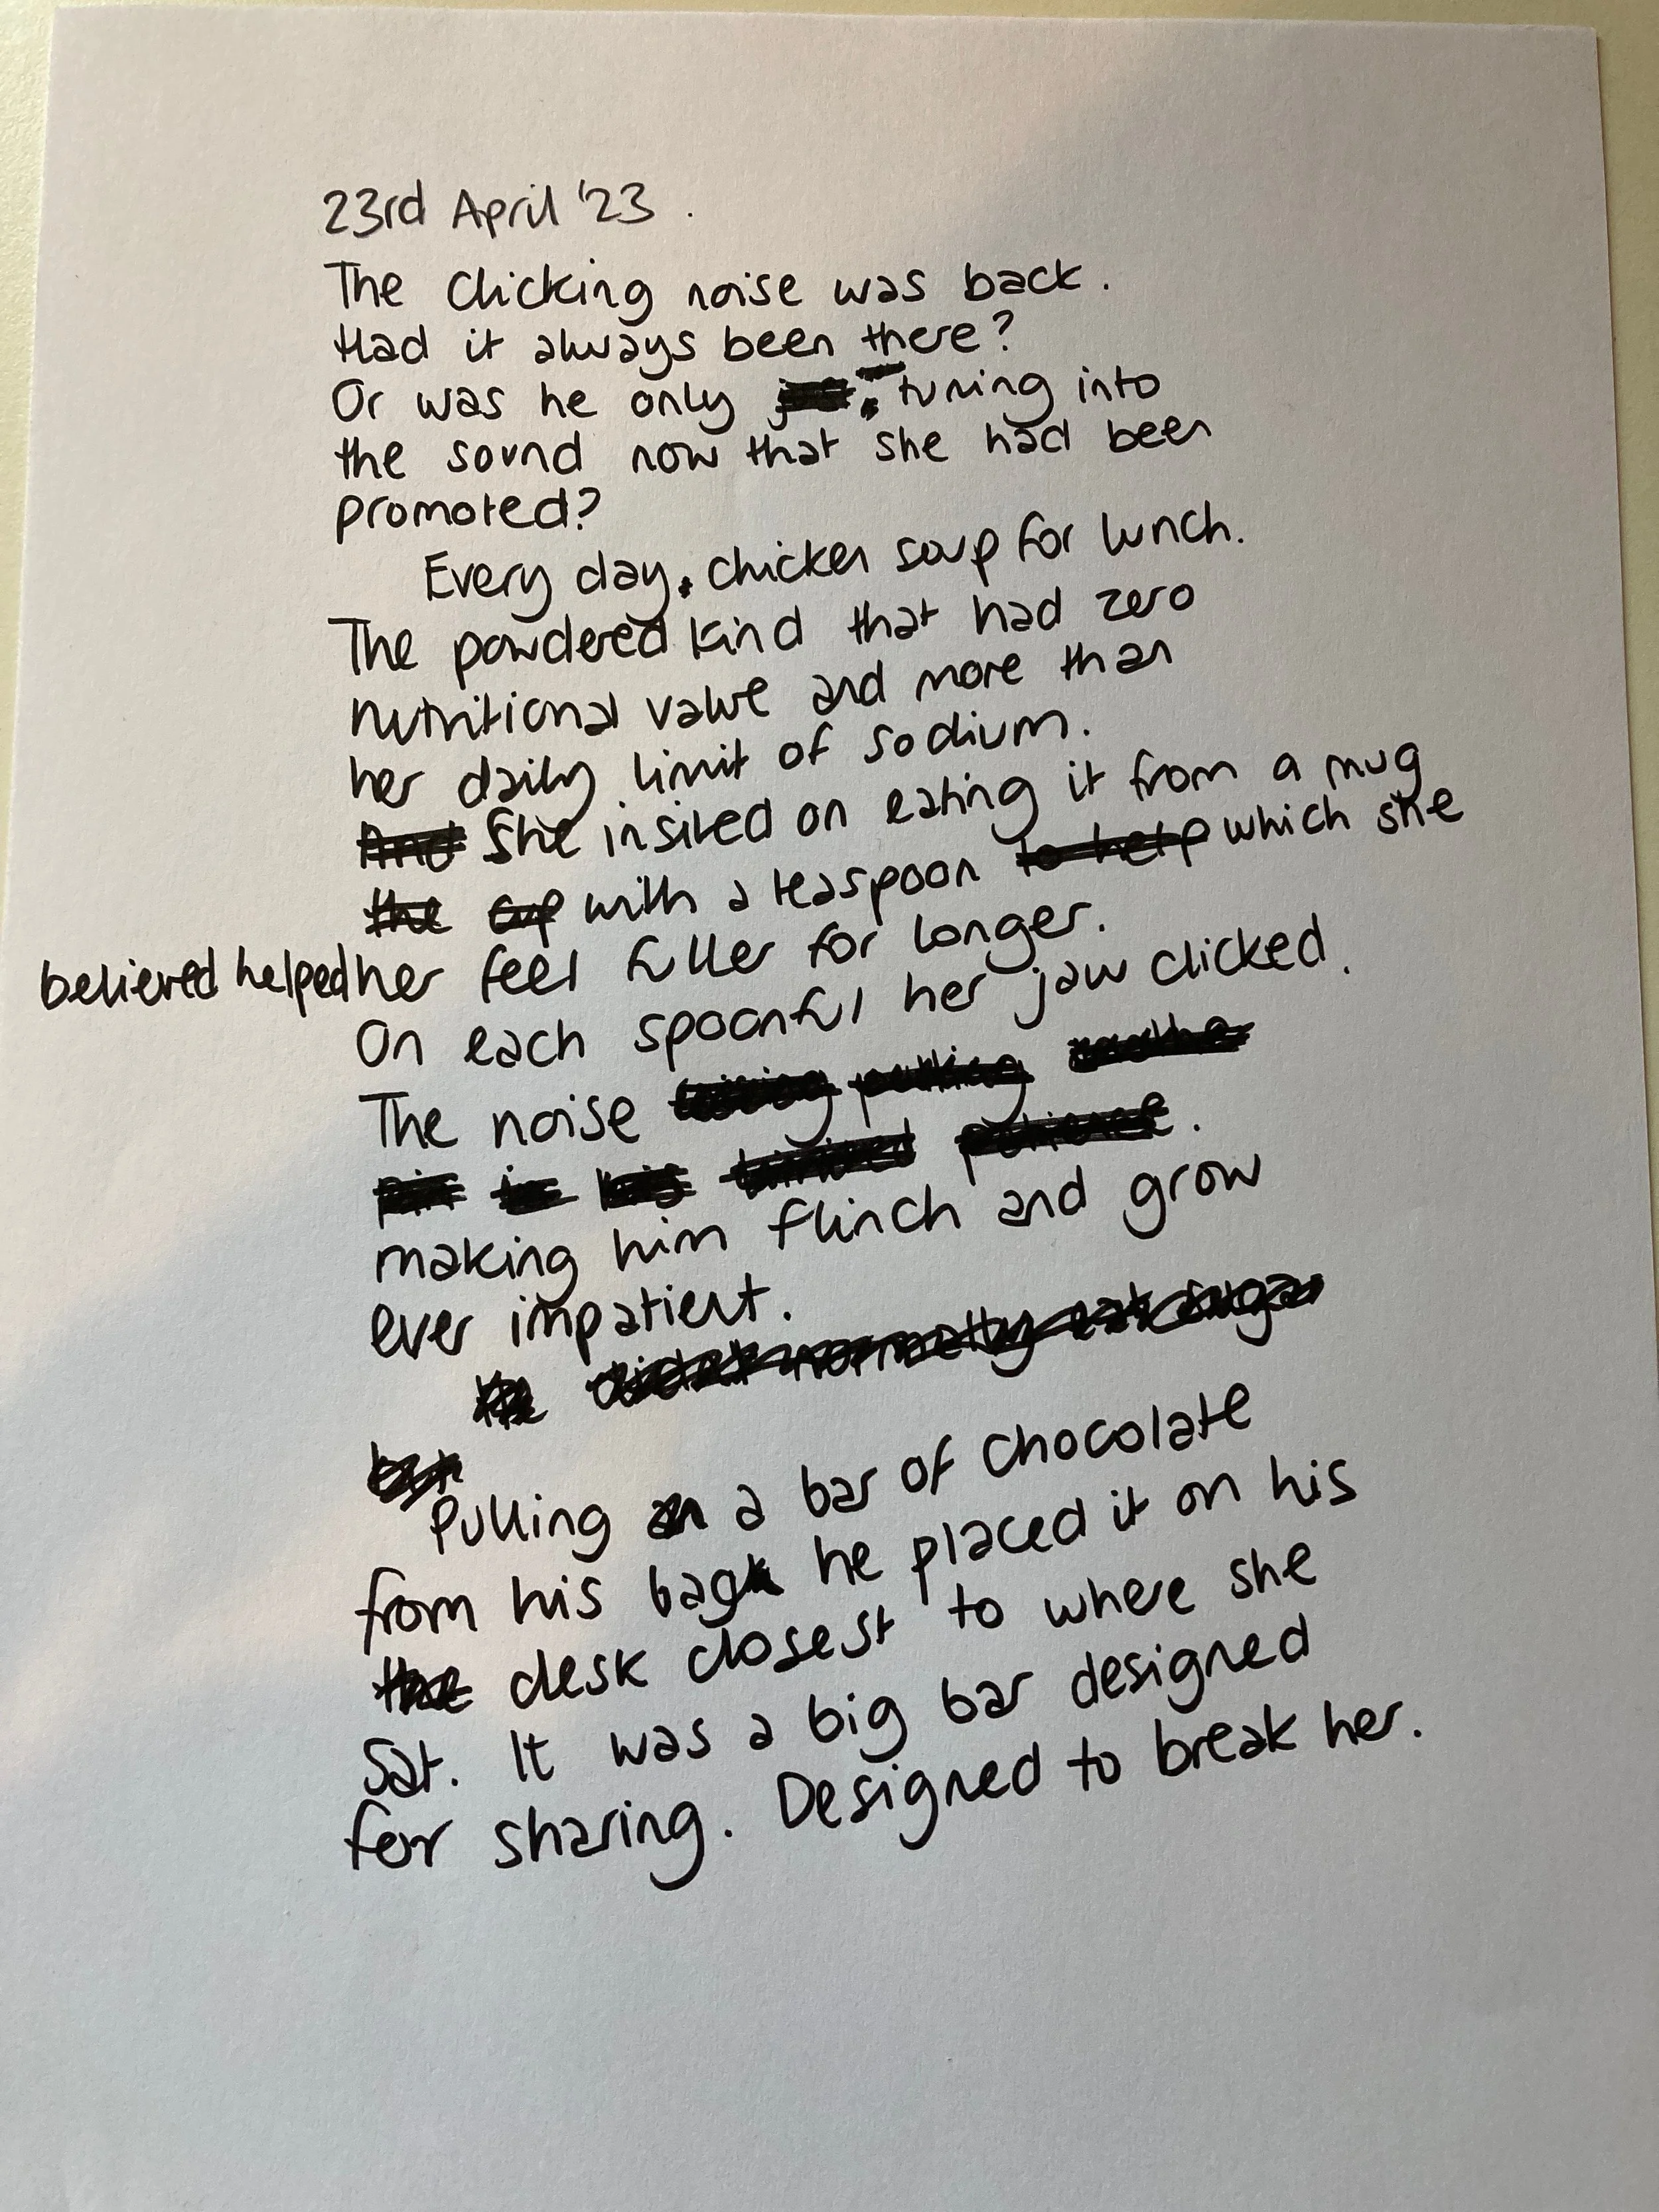 23rd April '23.
The clicking noise was back.
Had it always been there?
Or was he only tuning into
the sound now that she had been
promoted?
Every day. chicken soup for lunch.
The powdered kind that had zero
nutritional value and more than
her daily limit of sodium.
And She insited on eating it from a mug
the cup with a teaspoon to help which she
believed helped her feel fuller for longer.
On each spoonful her jaw clicked.
The noise pulling
pin in his limited patience.
making him flinch and grow
ever impatient.
He didn't normally eat sugar
but
Pulling a bar of chocolate
from his bag he placed it on his
the desk closest to where she
Sat. It was a big bar designed
for sharing. Designed to break her.